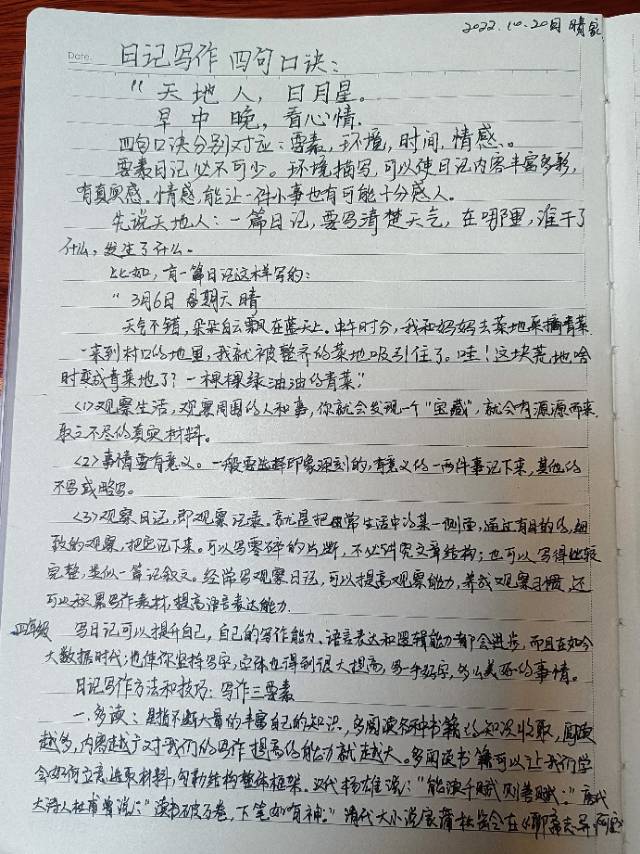 2022.10.20日 晴
Date.
日记写作 四句口诀：
“天 地 人，日月星。
早 中 晚，看心情.
四句口诀分别对应：要素，环境，时间，情感。
要素日记必不可少。环境描写，可以使日记内容丰富多彩，
有真实感。情感，能让一件小事也有可能十分感人。
先说天地人：一篇日记，要写清楚天气，在哪里，谁干了
什么，发生了什么。
比如，有一篇日记这样写的：
“3月6日 星期天 晴
天气不错，朵朵白云飘在蓝天上。中午时分，我和妈妈去菜地采摘青菜
一来到村口的地里，我就被整齐的菜地吸引住了。哇！这块荒地啥
时变成青菜地了？一棵棵绿油油的青菜.”
<1>观察生活，观察周围的人和事，你就会发现一个“宝藏”，就会有源源而来
取之不尽的真实材料。
<2>事情要有意义。一般要选择印象深刻的，有意义的一两件事记下来，其他的
不写或略写。
<3>观察日记，即观察记录。就是把日常生活中的某一侧面，通过有目的的，细
致的观察，把它记下来。可以写零碎的片断，不必讲究文章结构；也可以写得比较
完整，类似一篇记叙文。经常写观察日记，可以提高观察能力，养成观察习惯，还
可以积累写作素材，提高语言表达能力.
四年级 写日记可以提升自己，自己的写作能力、语言表达和逻辑能力都会进步，而且在如今
大数据时代；也使你坚持写字，字体也得到很大提高，多一手好字，多么美好的事情。
日记写作方法和技巧：写作三要素
一.多读：是指不断大量的丰富自己的知识，多阅读各种书籍的知识收取，阅读
越多，内容越广对我们的写作提高的能力就越大。多阅读书籍可以让我们学
会如何立意选取材料，勾勒结构整体框架。汉代杨雄说：“能读千赋则善赋；”唐代
大诗人杜甫曾说：“读书破万卷，下笔如有神。”清代大小说家蒲松龄在《聊斋志异